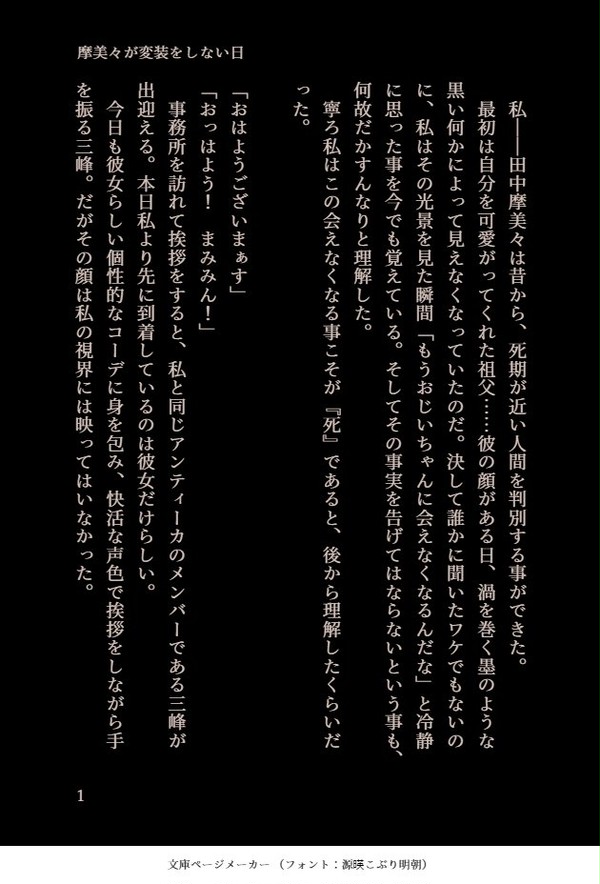 摩美々が変装をしない日
私――田中摩美々は昔から、死期が近い人間を判別する事ができた。
最初は自分を可愛がってくれた祖父……彼の顔がある日、渦を巻く墨のような
黒い何かによって見えなくなっていたのだ。決して誰かに聞いたワケでもないの
に、私はその光景を見た瞬間「もうおじいちゃんに会えなくなるんだな」と冷静
に思った事を今でも覚えている。そしてその事実を告げてはならないという事も、
何故だかすんなりと理解した。
寧ろ私はこの会えなくなる事こそが『死』であると、後から理解したくらいだ
った。
「おはようございまぁす」
「おっはよう！　まみみん！」
事務所を訪れて挨拶をすると、私と同じアンティーカのメンバーである三峰が
出迎える。本日私より先に到着しているのは彼女だけらしい。
今日も彼女らしい個性的なコーデに身を包み、快活な声色で挨拶をしながら手
を振る三峰。だがその顔は私の視界には映ってはいなかった。
1
文庫ページメーカー（フォント：源暎こぶり明朝）